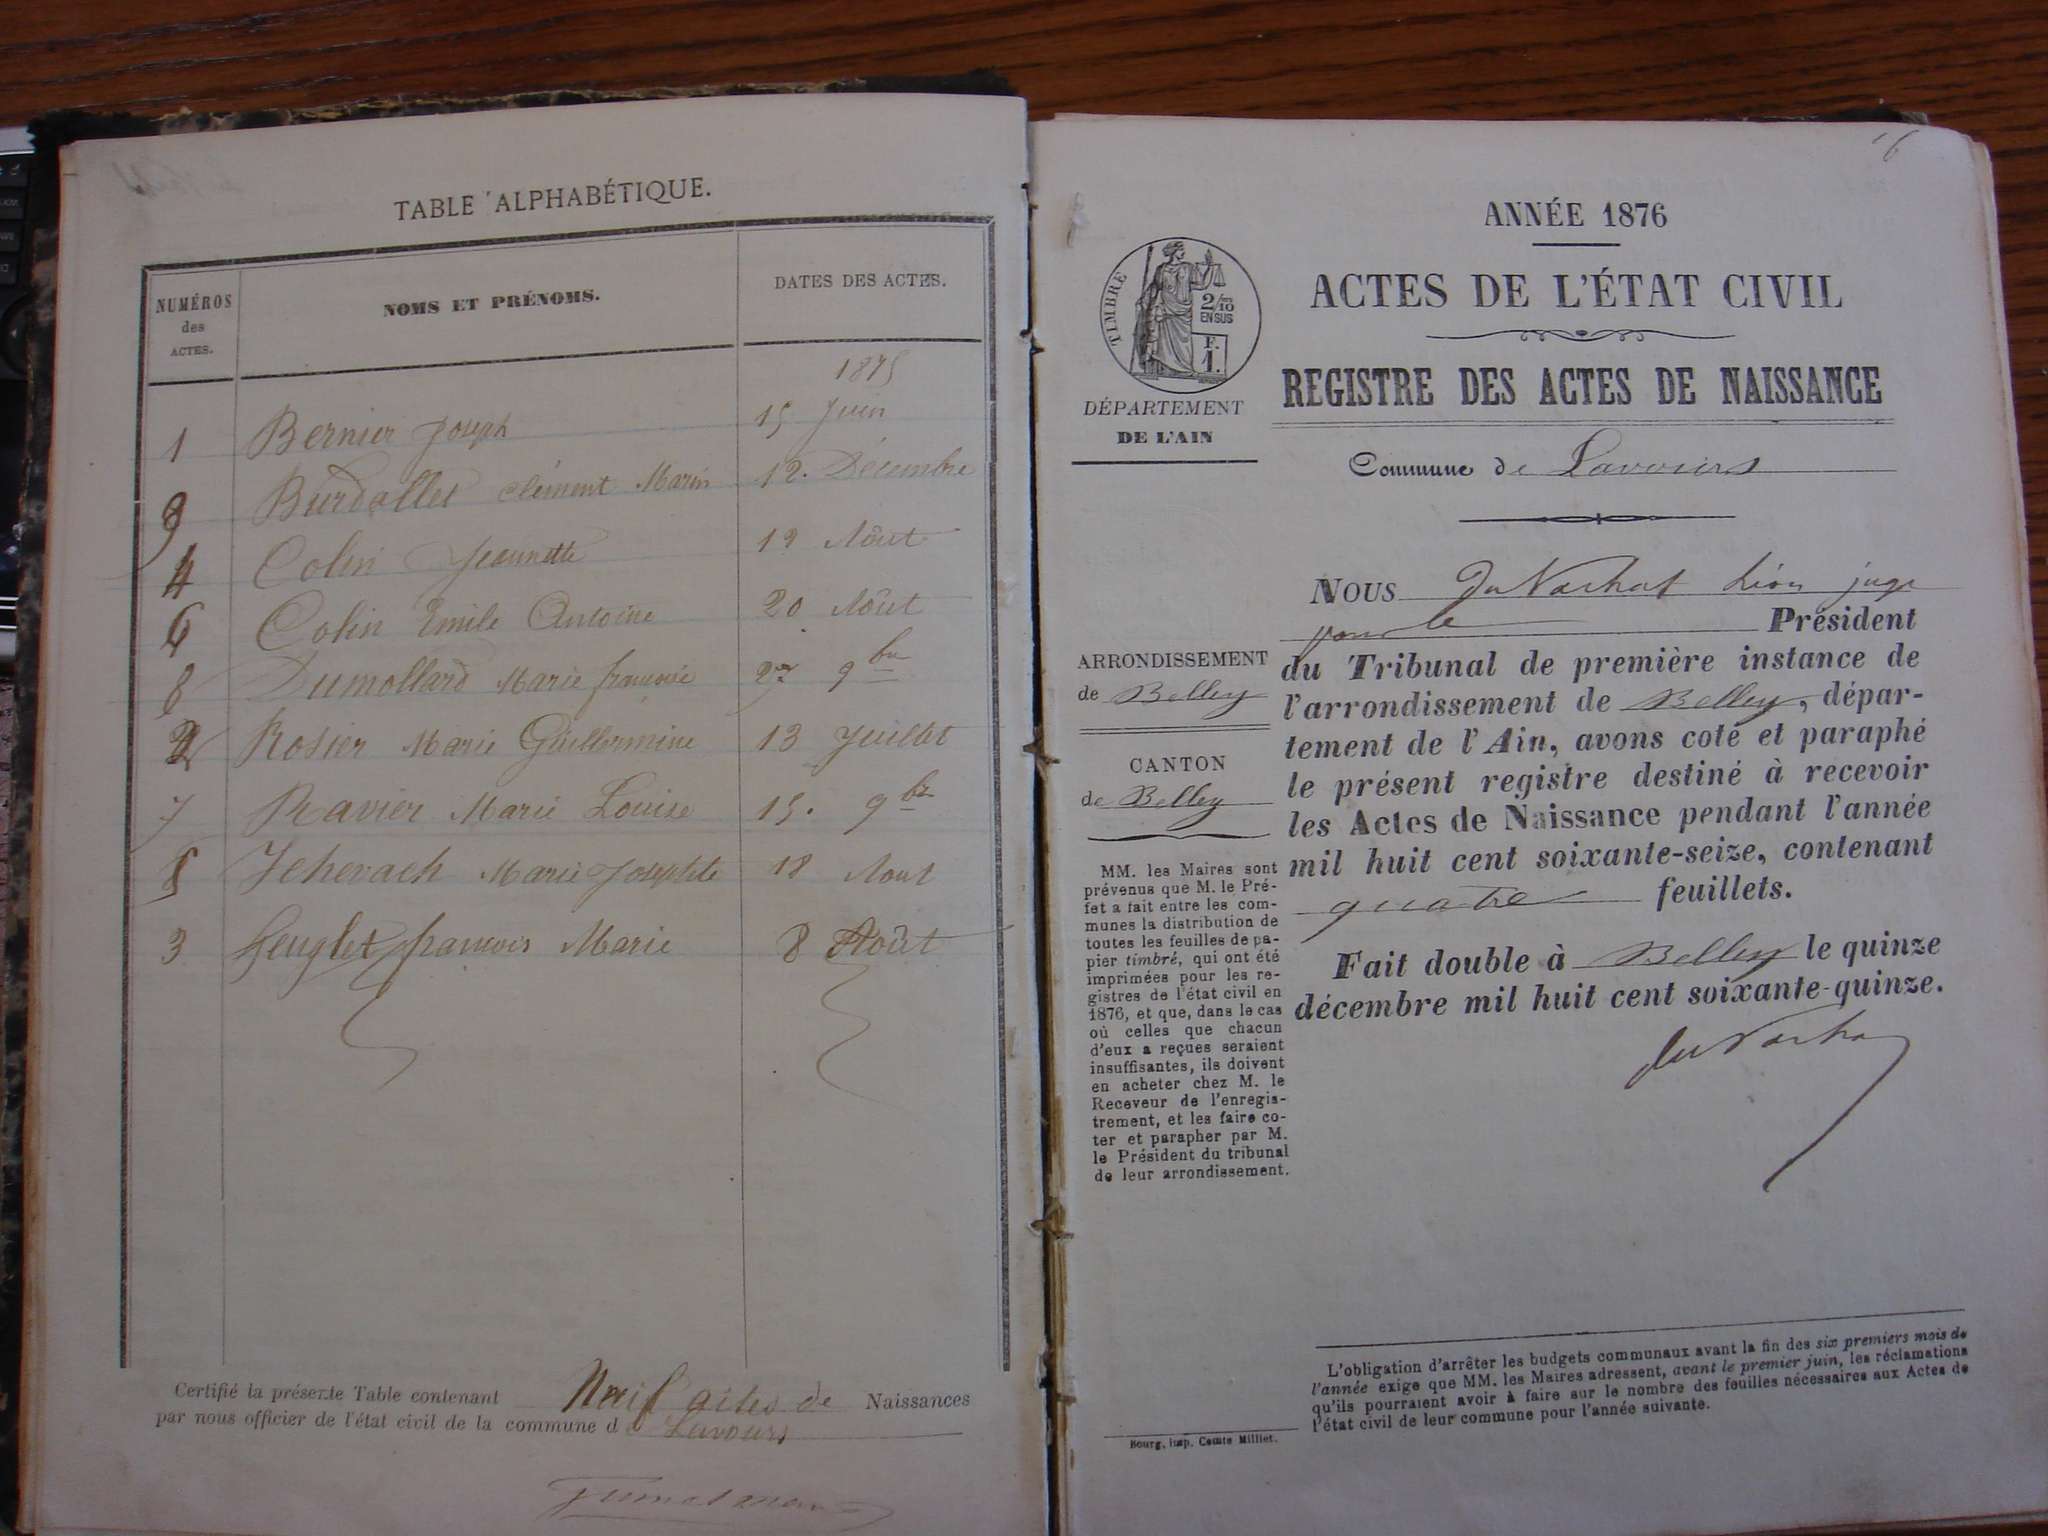 TABLE ALPHABÉTIQUE.
NUMÉROS des ACTES.
NOMS ET PRÉNOMS.
DATES DES ACTES.
1875
1 Bernier Joseph 15 Juin
9 Burdallet Clément Marin 12. Décembre
4 Colin Jeannette 12 Aôut
6 Colin Emile Antoine 20 Aôut
8 Dumollard Marie françoise 27 9bre
2 Rosier Marie Guillermine 13 Juillet
7 Ravier Marie Louise 15. 9bre
5 Marie Josephte 18 Aout
3 françois Marie 8 Aôut
Certifié la présente Table contenant Neuf actes de Naissances
par nous officier de l'état civil de la commune d Lavours
16
ANNÉE 1876
ACTES DE L'ÉTAT CIVIL
REGISTRE DES ACTES DE NAISSANCE
TIMBRE
2/10
EN SUS
F.
1.
DÉPARTEMENT
DE L'AIN
Commune de Lavours
NOUS Léon juge
pour le Président
du Tribunal de première instance de
l'arrondissement de Belley, dépar-
tement de l'Ain, avons coté et paraphé
le présent registre destiné à recevoir
les Actes de Naissance pendant l'année
mil huit cent soixante-seize, contenant
quatre feuillets.
Fait double à Belley le quinze
décembre mil huit cent soixante-quinze.
ARRONDISSEMENT
de Belley
CANTON
de Belley
MM. les Maires sont
prévenus que M. le Pré-
fet a fait entre les com-
munes la distribution de
toutes les feuilles de pa-
pier timbré, qui ont été
imprimées pour les re-
gistres de l'état civil en
1876, et que, dans le cas
où celles que chacun
d'eux a reçues seraient
insuffisantes, ils doivent
en acheter chez M. le
Receveur de l'enregis-
trement, et les faire co-
ter et parapher par M.
le Président du tribunal
de leur arrondissement.
L'obligation d'arrêter les budgets communaux avant la fin des six premiers mois de
l'année exige que MM. les Maires adressent, avant le premier juin, les réclamations
qu'ils pourraient avoir à faire sur le nombre des feuilles nécessaires aux Actes de
l'état civil de leur commune pour l'année suivante.
Bourg, imp. Comte Milliet.